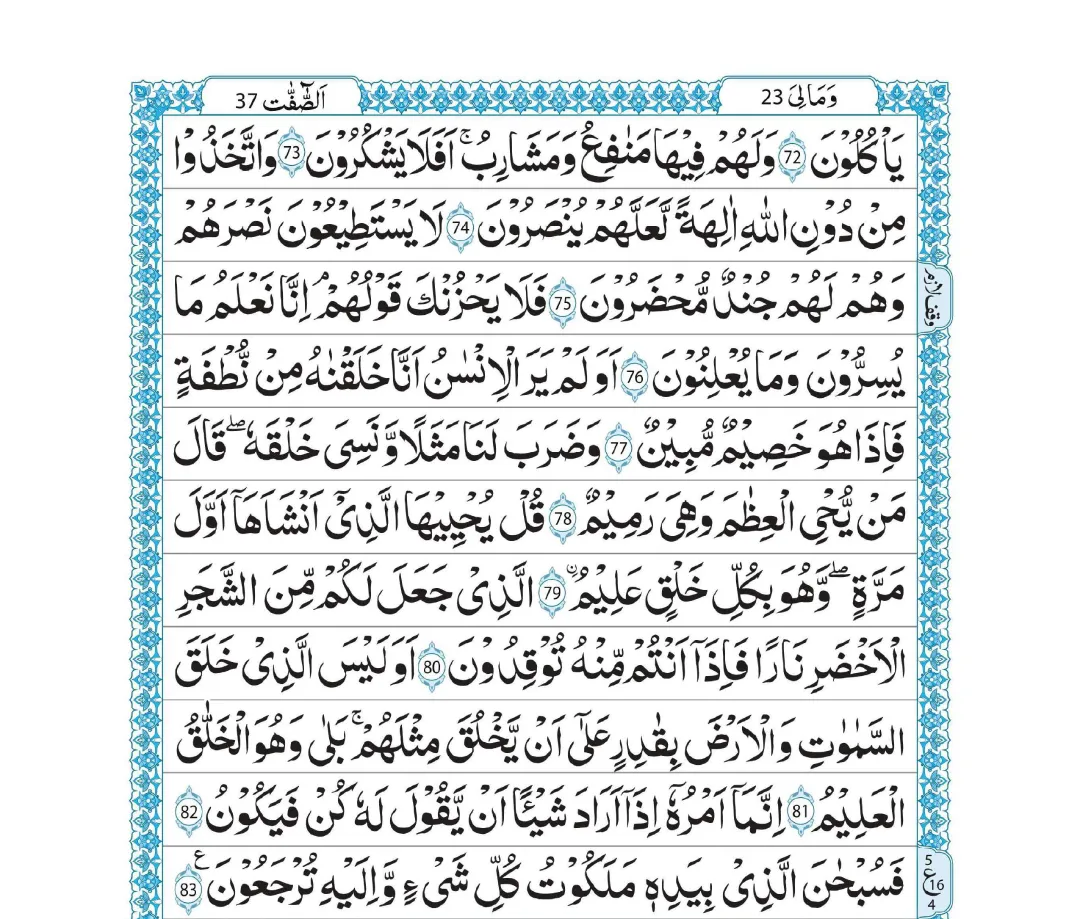 وَمَالِیَ 23
اَلصّٰٓفّٰت 37
یَاْكُلُوْنَ 72 وَلَهُمْ فِیْهَا مَنٰفِعُ وَمَشَارِبُ ؕ اَفَلَا یَشْكُرُوْنَ 73 وَاتَّخَذُوْا
مِنْ دُوْنِ اللّٰهِ اٰلِهَةً لَّعَلَّهُمْ یُنْصَرُوْنَ 74 لَا یَسْتَطِیْعُوْنَ نَصْرَهُمْ
وَهُمْ لَهُمْ جُنْدٌ مُّحْضَرُوْنَ 75 فَلَا یَحْزُنْكَ قَوْلُهُمْ ۘ اِنَّا نَعْلَمُ مَا
وقف لازم
یُسِرُّوْنَ وَمَا یُعْلِنُوْنَ 76 اَوَلَمْ یَرَ الْاِنْسٰنُ اَنَّا خَلَقْنٰهُ مِنْ نُّطْفَةٍ
فَاِذَا هُوَ خَصِیْمٌ مُّبِیْنٌ 77 وَضَرَبَ لَنَا مَثَلًا وَّنَسِیَ خَلْقَهٗ ؕ قَالَ
مَنْ یُّحْیِ الْعِظٰمَ وَهِیَ رَمِیْمٌ 78 قُلْ یُحْیِیْهَا الَّذِیْۤ اَنْشَاَهَاۤ اَوَّلَ
مَرَّةٍ ؕ وَّهُوَ بِكُلِّ خَلْقٍ عَلِیْمُ ۙ 79 الَّذِیْ جَعَلَ لَكُمْ مِّنَ الشَّجَرِ
الْاَخْضَرِ نَارًا فَاِذَاۤ اَنْتُمْ مِّنْهُ تُوْقِدُوْنَ 80 اَوَلَیْسَ الَّذِیْ خَلَقَ
السَّمٰوٰتِ وَالْاَرْضَ بِقٰدِرٍ عَلٰۤی اَنْ یَّخْلُقَ مِثْلَهُمْ ؕ بَلٰی وَهُوَ الْخَلّٰقُ
الْعَلِیْمُ 81 اِنَّمَاۤ اَمْرُهٗۤ اِذَاۤ اَرَادَ شَیْـًٔا اَنْ یَّقُوْلَ لَهٗ كُنْ فَیَكُوْنُ 82
فَسُبْحٰنَ الَّذِیْ بِیَدِهٖ مَلَكُوْتُ كُلِّ شَیْءٍ وَّاِلَیْهِ تُرْجَعُوْنَ ع 83
5
ع 16
4